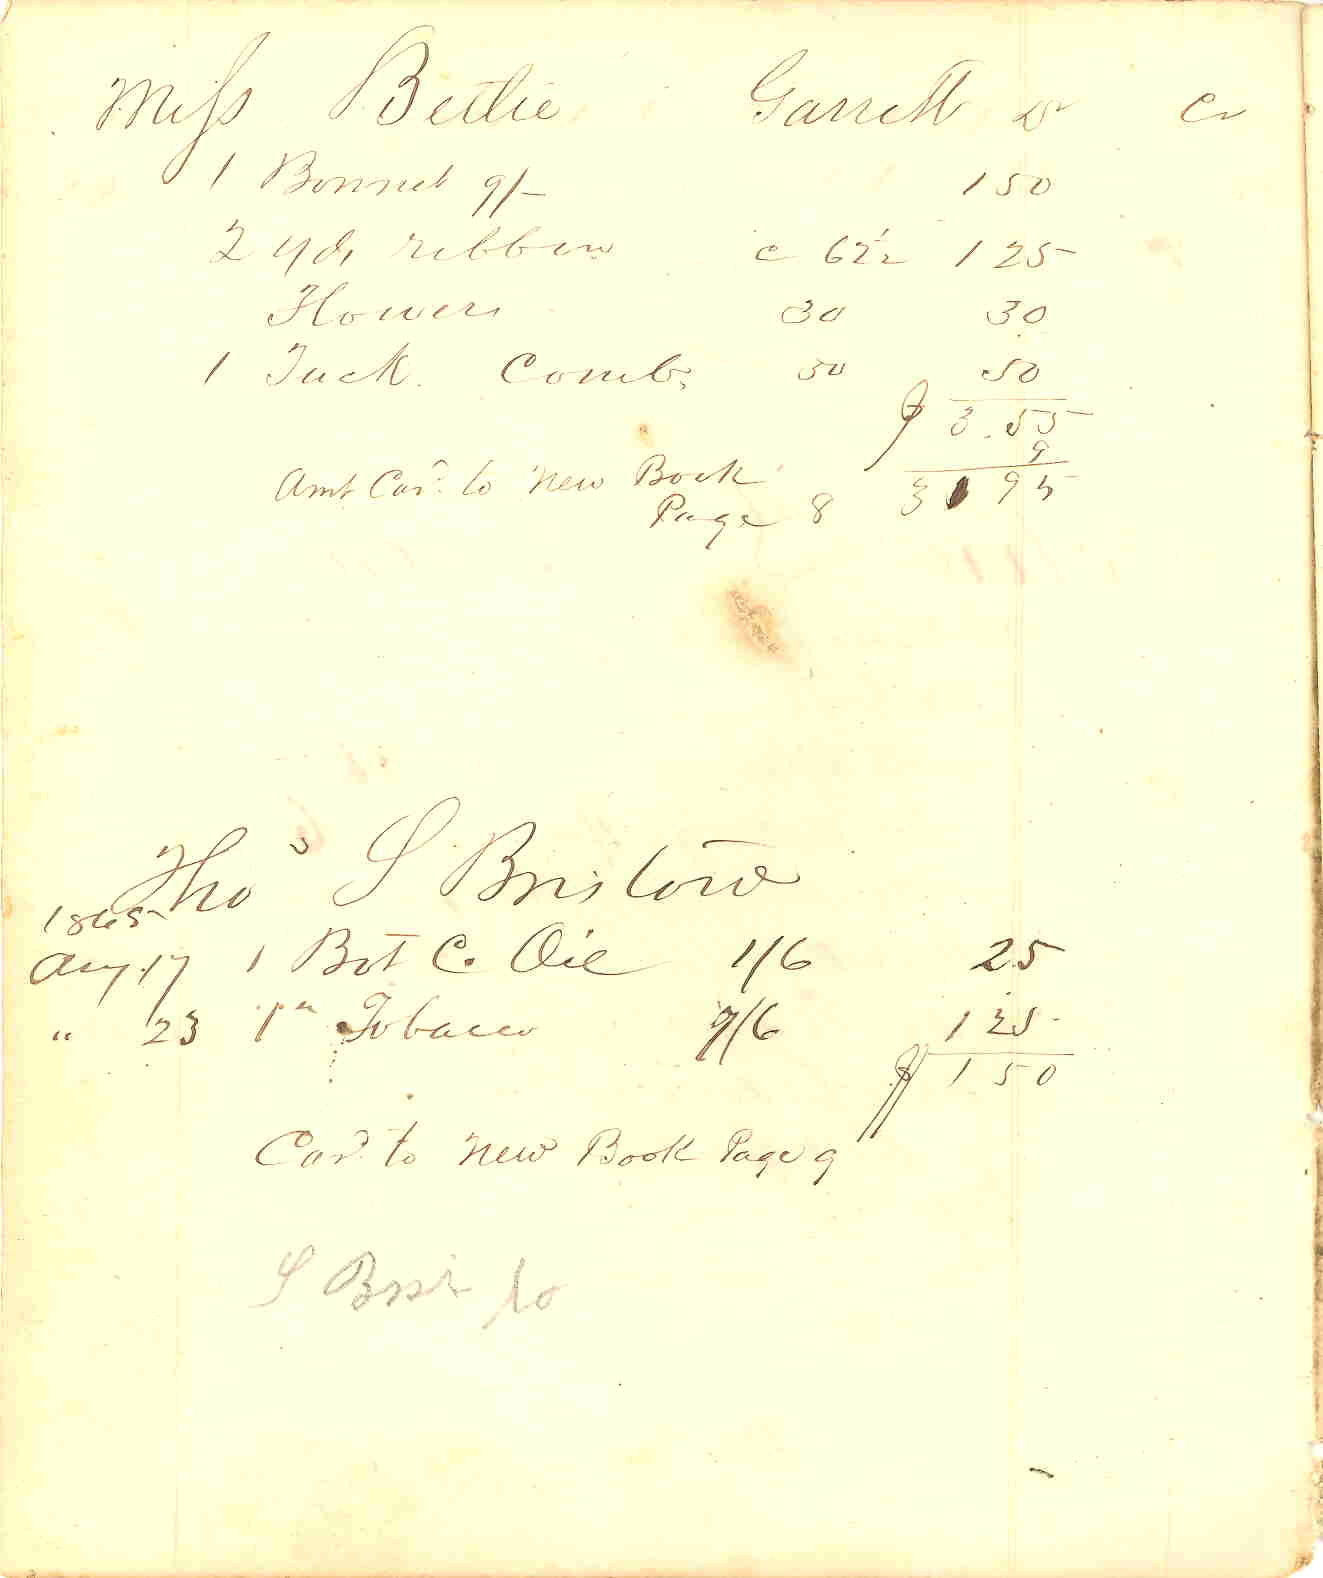 Miss Bettie Garrett Dr Cr
1 Bonnet 9/- 1 50
2 yds ribbon c 62½ 1 25
Flowers 30 30
1 Tuck Comb 50 50
$ 3.55
9
Amt Card. to New Book 3 95
Page 8
Thos S Bristow
1865
Aug 17 1 Bot C. Oil 1/6 25
" 23 Tobacco 7/6 1 25
$ 1 50
Card. to New Book Page 9